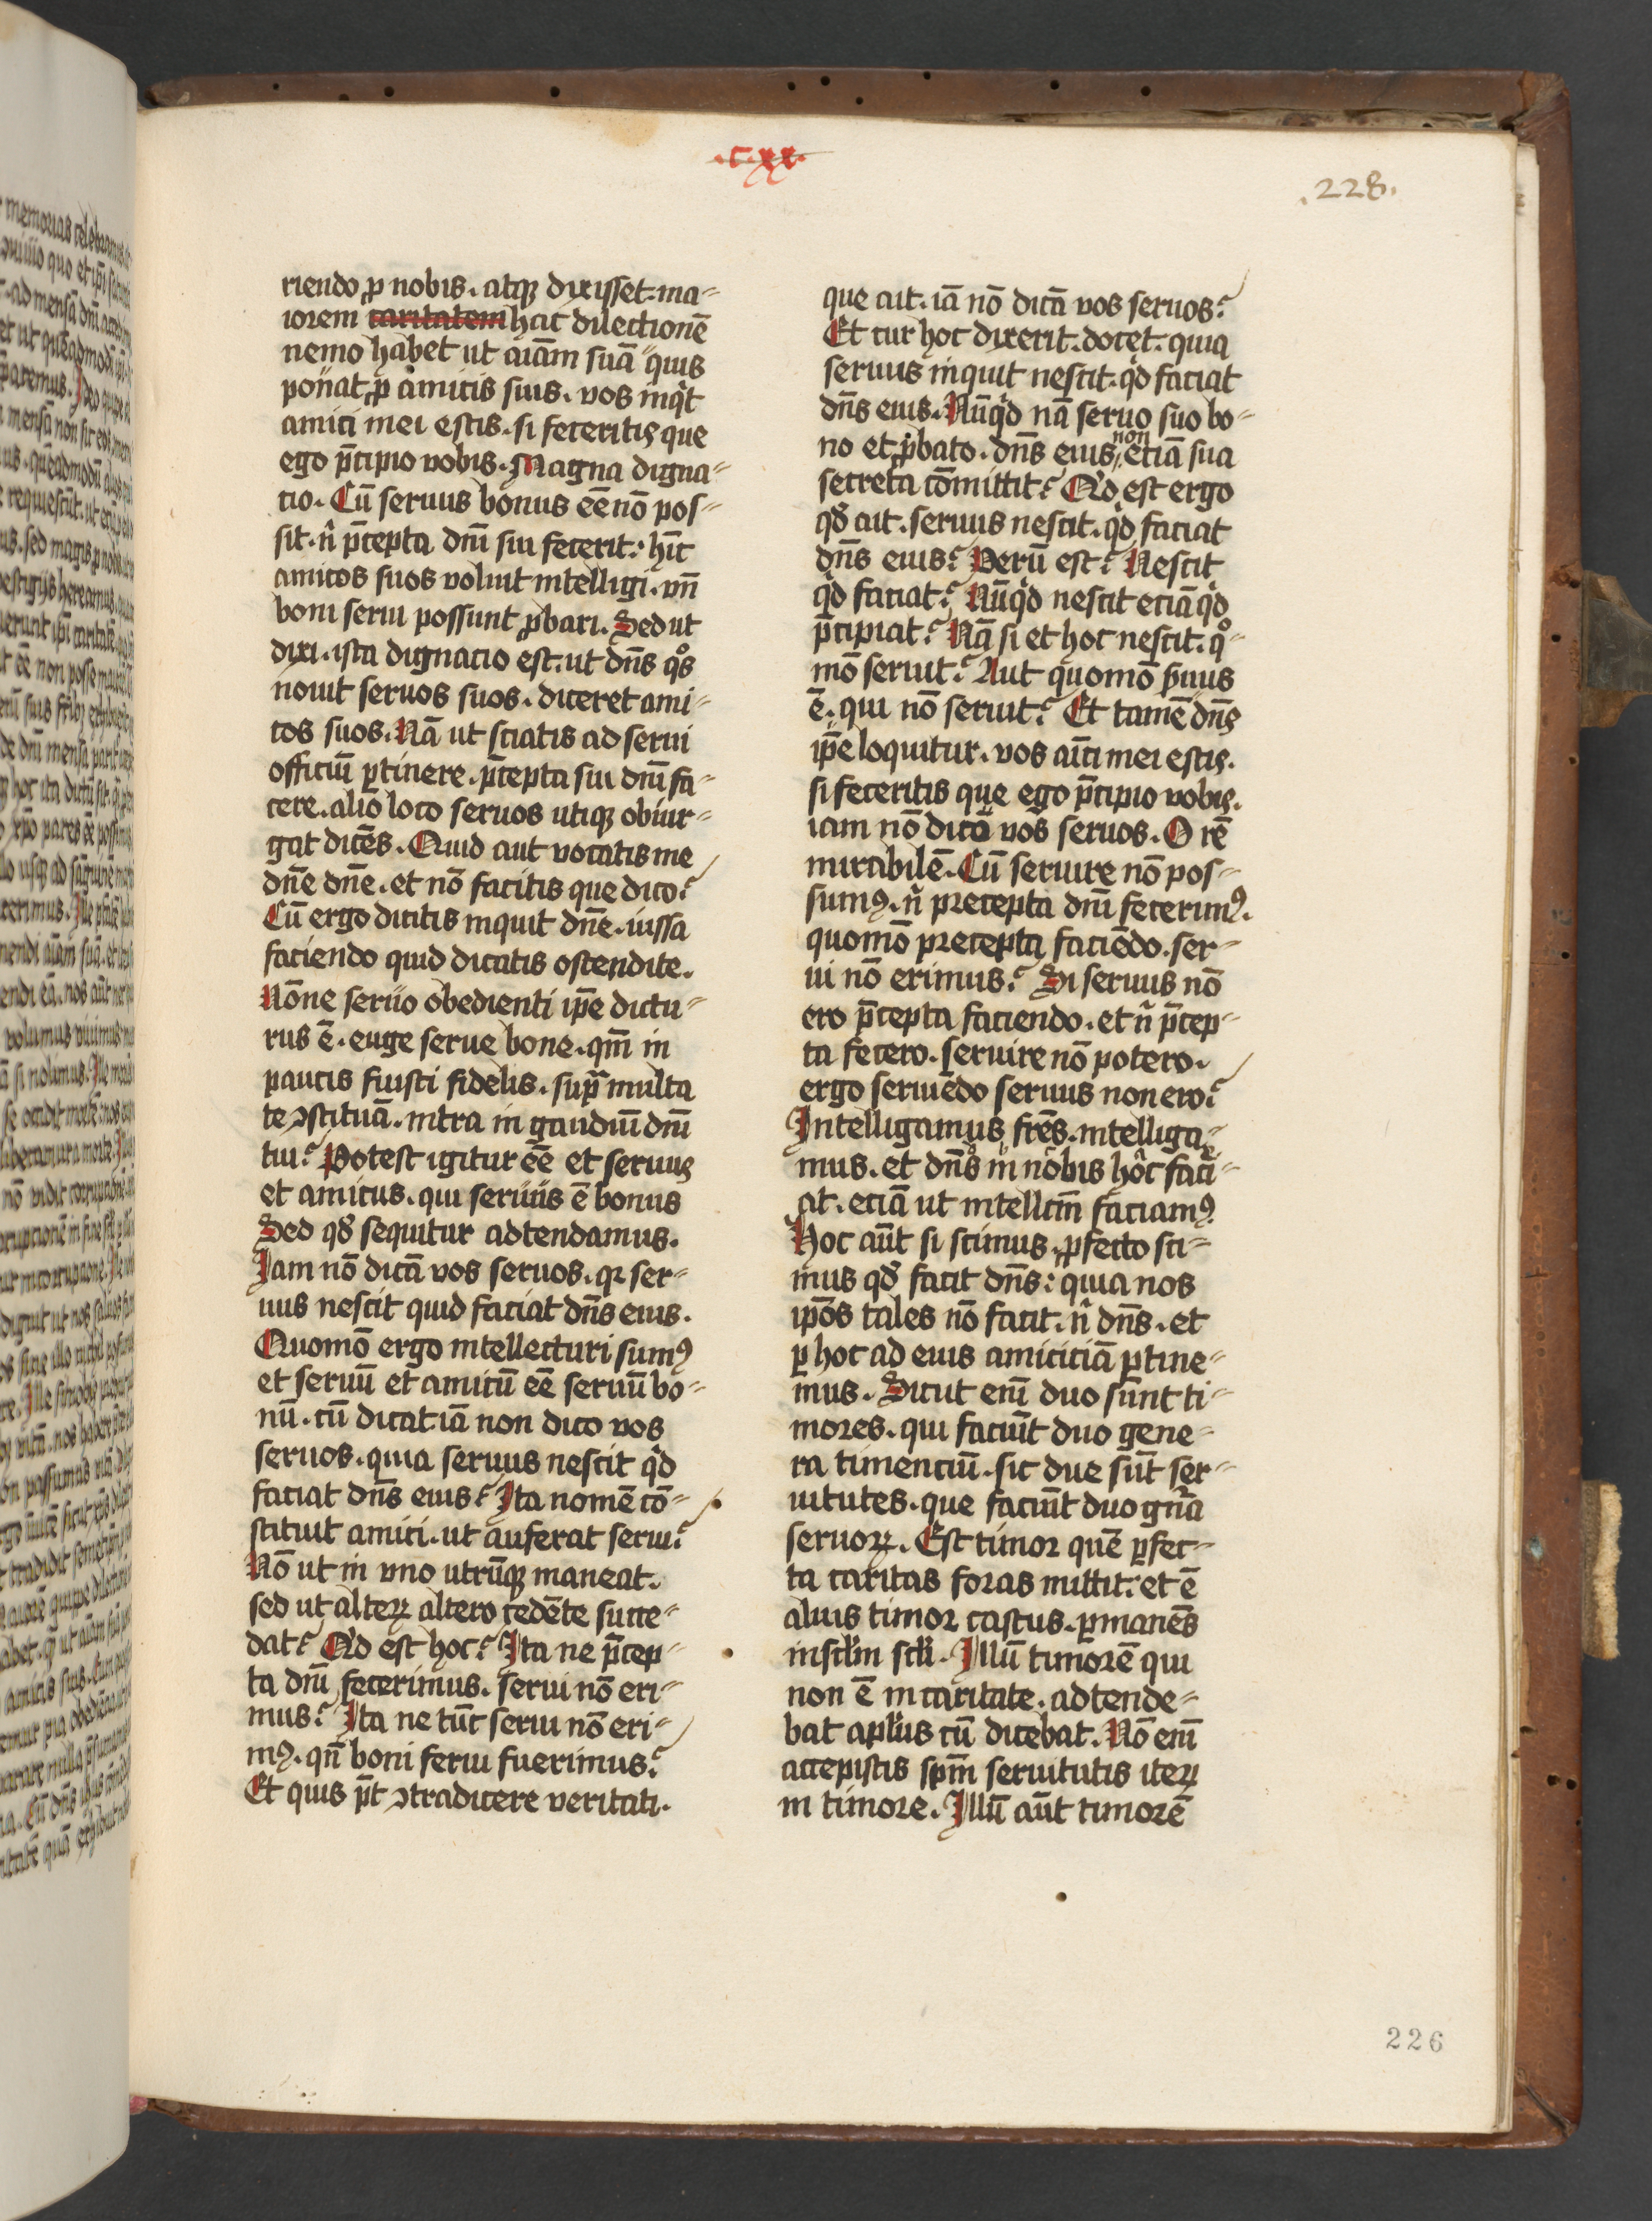 .c.xx.
.228.
riendo ꝓ nobis. atqꝫ dixisset. ma⸗
iorem caritatem hac dilectionē
nemo habet ut aīam suā quis
ponat ꝓ amicis suis. vos inqͥt
amici mei estis. si feceritis que
ego p̄cipio vobis. Magna digna⸗
tio. Cū seruus bonus eē nō pos⸗
sit. n̄ p̄cepta dn̄i sui fecerit: hīc
amicos suos voluit intelligi. vn̄
boni serui possunt ꝓbari. Sed ut
dixi. ista dignacio est. ut dn̄s qͦs
nouit seruos suos. diceret ami⸗
cos suos. Nā ut sciatis ad serui
officiū ꝑtinere. p̄cepta sui dn̄i fa⸗
cere. alio loco seruos utiqꝫ obiur⸗
gat dicēs. Quid aut vocatis me
dn̄e dn̄e. et nō facitis que dico?
Cū ergo dicitis inquit dn̄e. iussa
faciendo quid dicatis ostendite.
Nōne seruo obedienti ip̄e dictu⸗
rus ē. euge serue bone. qm̄ in
paucis fuisti fidelis. supᷓ multa
te ꝯstituā. intra in gaudiū dn̄i
tui? Potest igitur eē et seruus
et amicus. qui seruus ē bonus
Sed qđ sequitur adtendamus.
Iam nō dicā vos seruos. qꝛ ser⸗
uus nescit quid faciat dn̄s eius.
Quomō ergo intellecturi sumꝰ
et seruū et amicū eē seruū bo⸗
nū. cū dicat iā non dico vos
seruos. quia seruus nescit qͥd
faciat dn̄s eius? Ita nomē cō⸗
stituit amici. ut auferat serui?
Nō ut in vno utrūqꝫ maneat.
sed ut alteꝝ altero cedēte succe⸗
dat? Qͥd est hoc? Ita ne p̄cep⸗
ta dn̄i fecerimus. serui nō eri⸗
mus? Ita ne tūc serui nō eri⸗
mꝰ. qn̄ boni serui fuerimus?
Et quis pt̄ ꝯtradicere veritati.
que ait. iā nō dicā vos seruos?
Et cur hoc dixerit. docet. quia
seruus inquit nescit. qͥd faciat
dn̄s eius. Nūqͥd nā seruo suo bo⸗
no et ꝓbato. dn̄s eius non etiā sua
secreta cōmittit? Qͥd est ergo
qđ ait. seruus nescit. qͥd faciat
dn̄s eius? Verū est? Nescit
qͥd faciat? Nūqͥd nescit eciā qͥd
p̄cipiat? Nā si et hoc nescit. qͦ⸗
mō seruit? Aut quomō ẜuus
ē. qui nō seruit? Et tamē dn̄s
ip̄e loquitur. vos aīci mei estis.
si feceritis que ego p̄cipio vobis.
iam nō dicā vos seruos. O rē
mirabilē. Cū seruire nō pos⸗
sumꝰ. n̄ precepta dn̄i fecerimꝰ.
quomō precepta faciēdo. ser⸗
ui nō erimus? Si seruus nō
ero p̄cepta faciendo. et n̄ p̄cep⸗
ta fecero. seruire nō potero.
ergo seruiēdo seruus non ero?
Intelligamus fr̄es. intelliga⸗
mus. et dn̄s in nobis hoc faci⸗
at. eciā ut intell'cm̄ faciamꝰ.
Hoc aūt si scimus. ꝓfecto sci⸗
mus qđ facit dn̄s: quia nos
ip̄os tales nō facit. n̄ dn̄s. et
ꝑ hoc ad eius amiciciā ꝑtine⸗
mus. Sicut enī duo sunt ti⸗
mores. qui faciūt duo gene⸗
ra timenciū. sic due sūt ser⸗
uitutes. que faciūt duo gn̄a
seruoꝝ. Est timor quē ꝑfec⸗
ta caritas foras mittit: et ē
alius timor castus. ꝑmanēs
in scl̄m scl̄i. Illū timorē qui
non ē in caritate. adtende⸗
bat apl̄us cū dicebat. Nō enī
accepistis sp̄m seruitutis iteꝝ
in timore. Illū aūt timorē
226